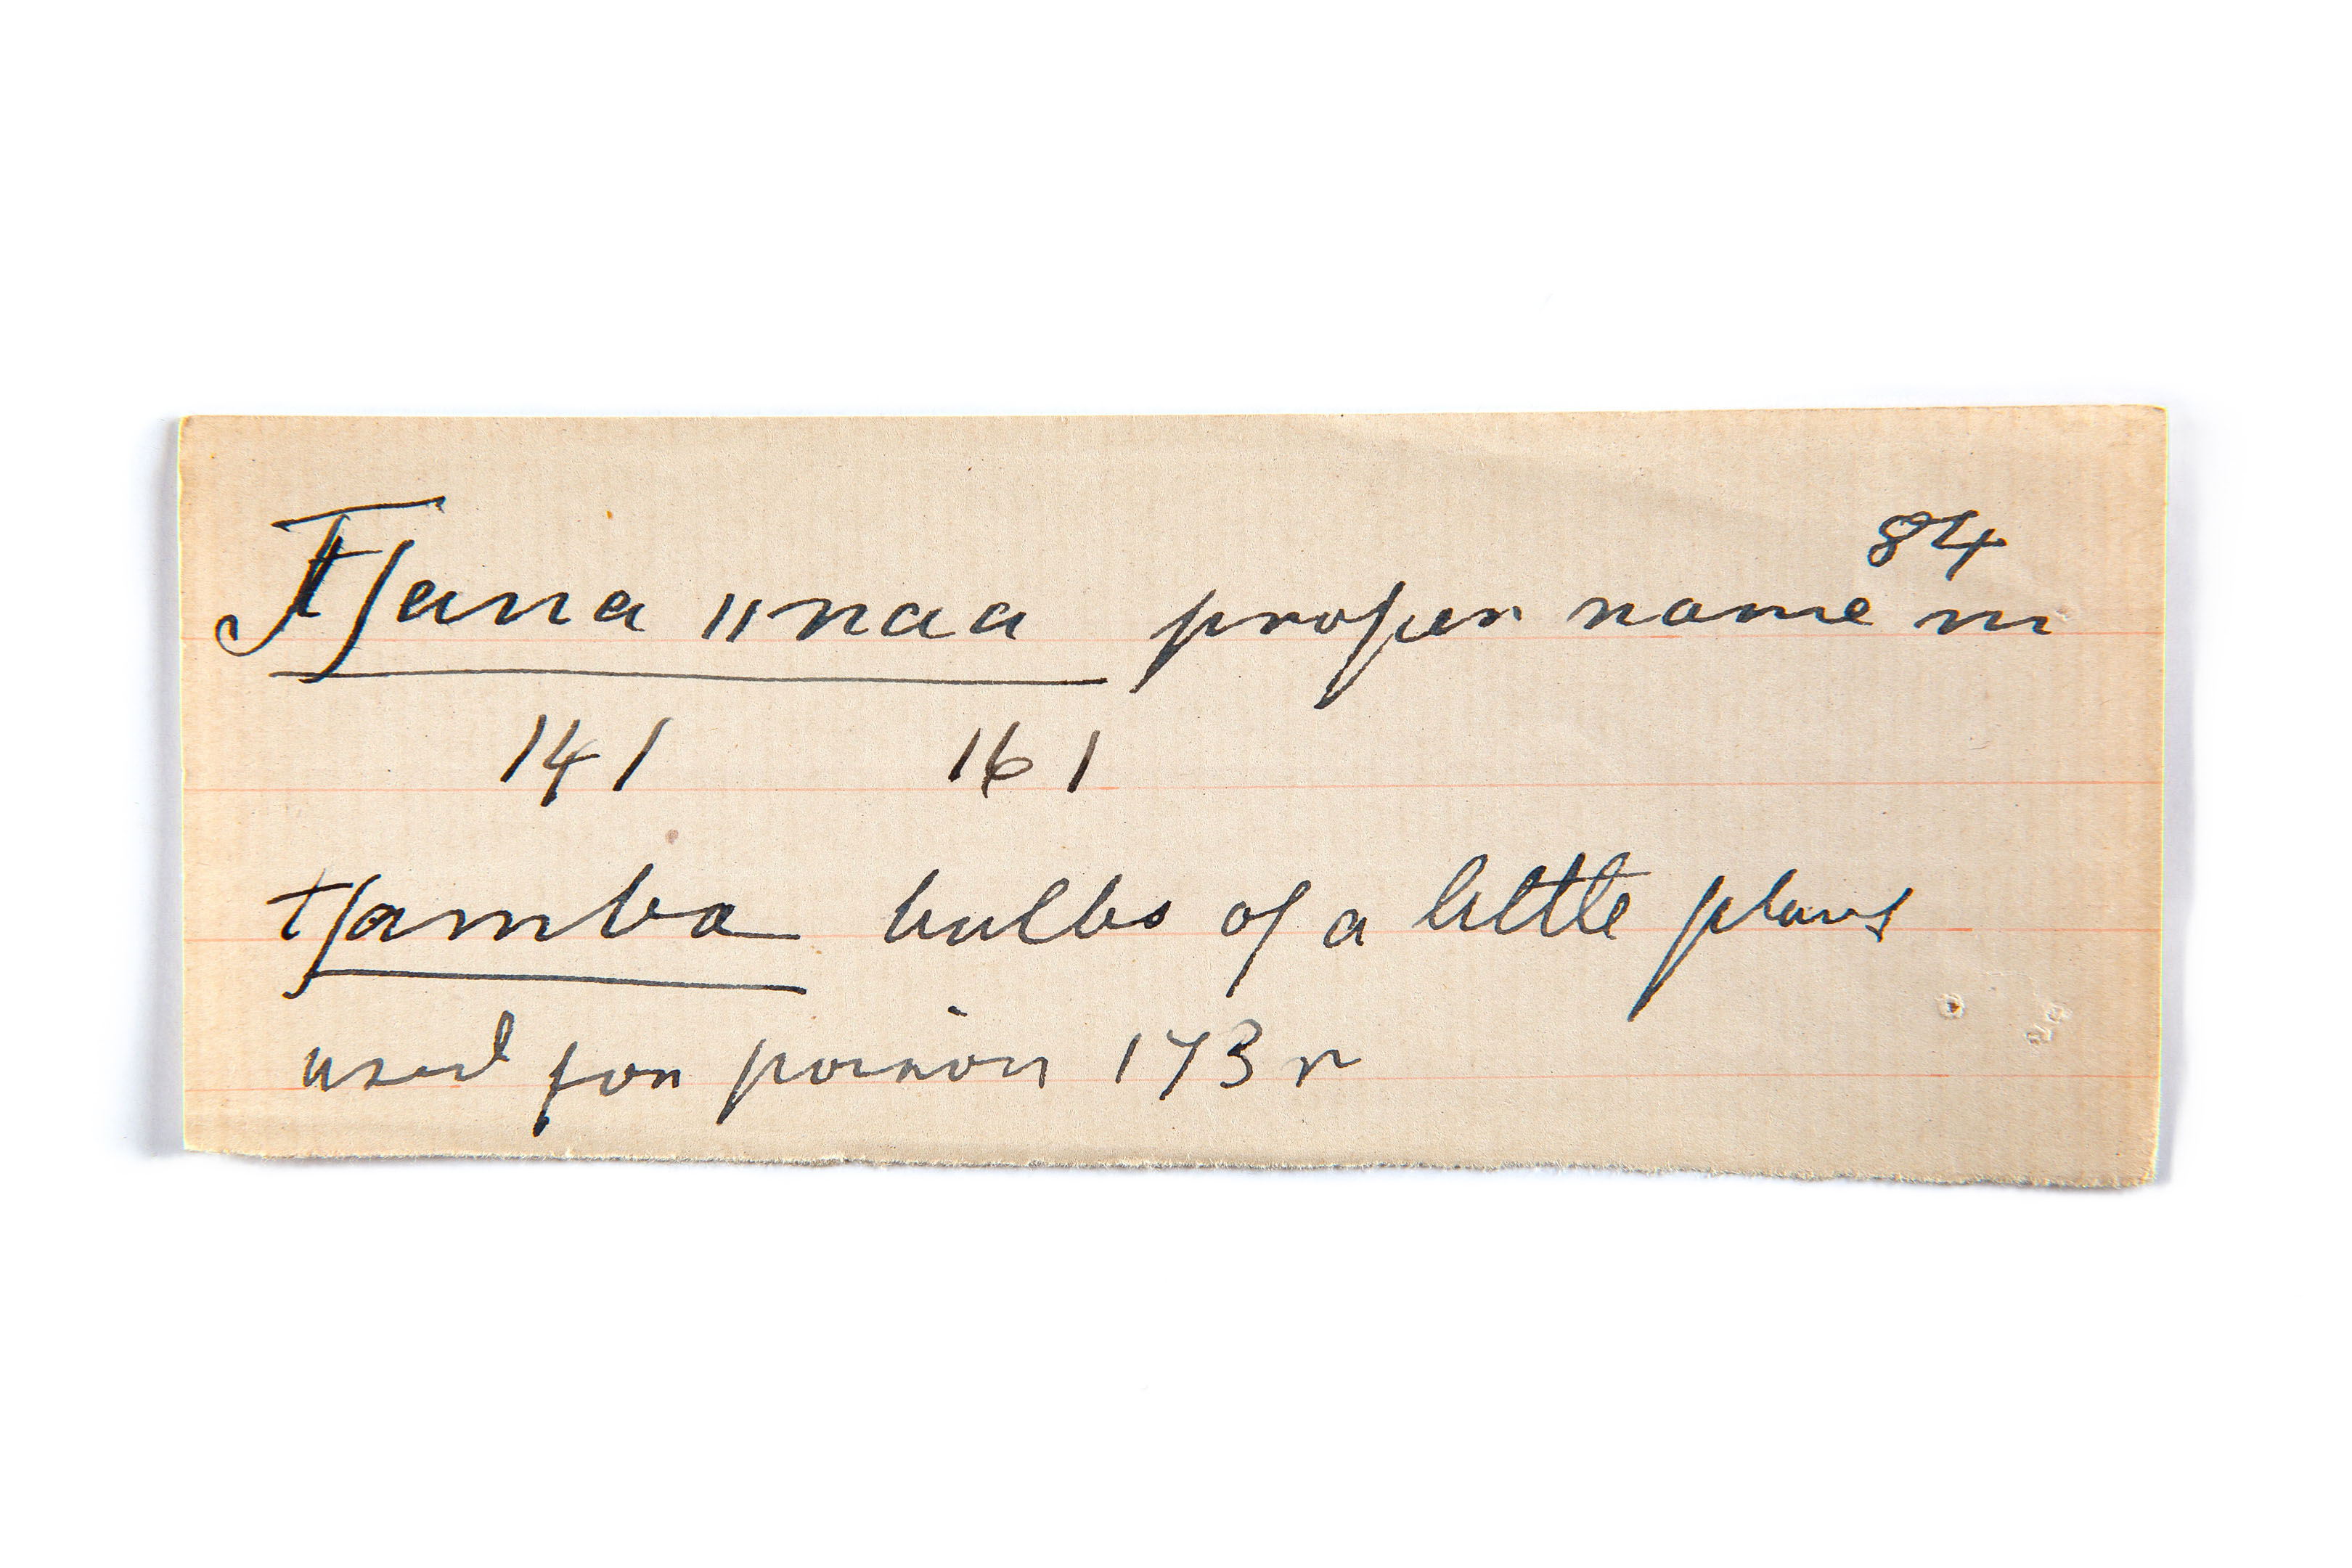 84
Tʃana ıınaa proper name m
141 161
tʃamba bulbs of a little plant
used for poison 173 r